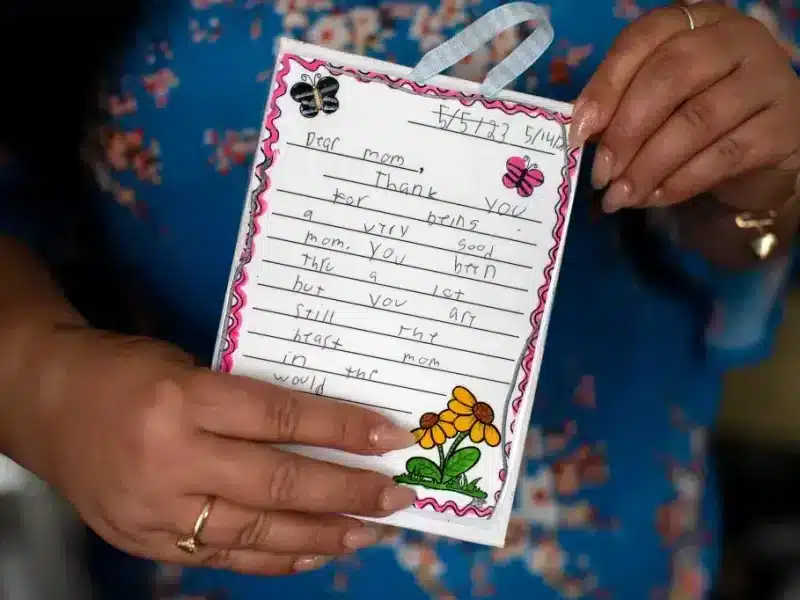 5/5/23 5/14/2
Dear mom,
Thank you
for being
a very good
mom. you been
thru a lot
but you are
still the
beast mom
in the
would